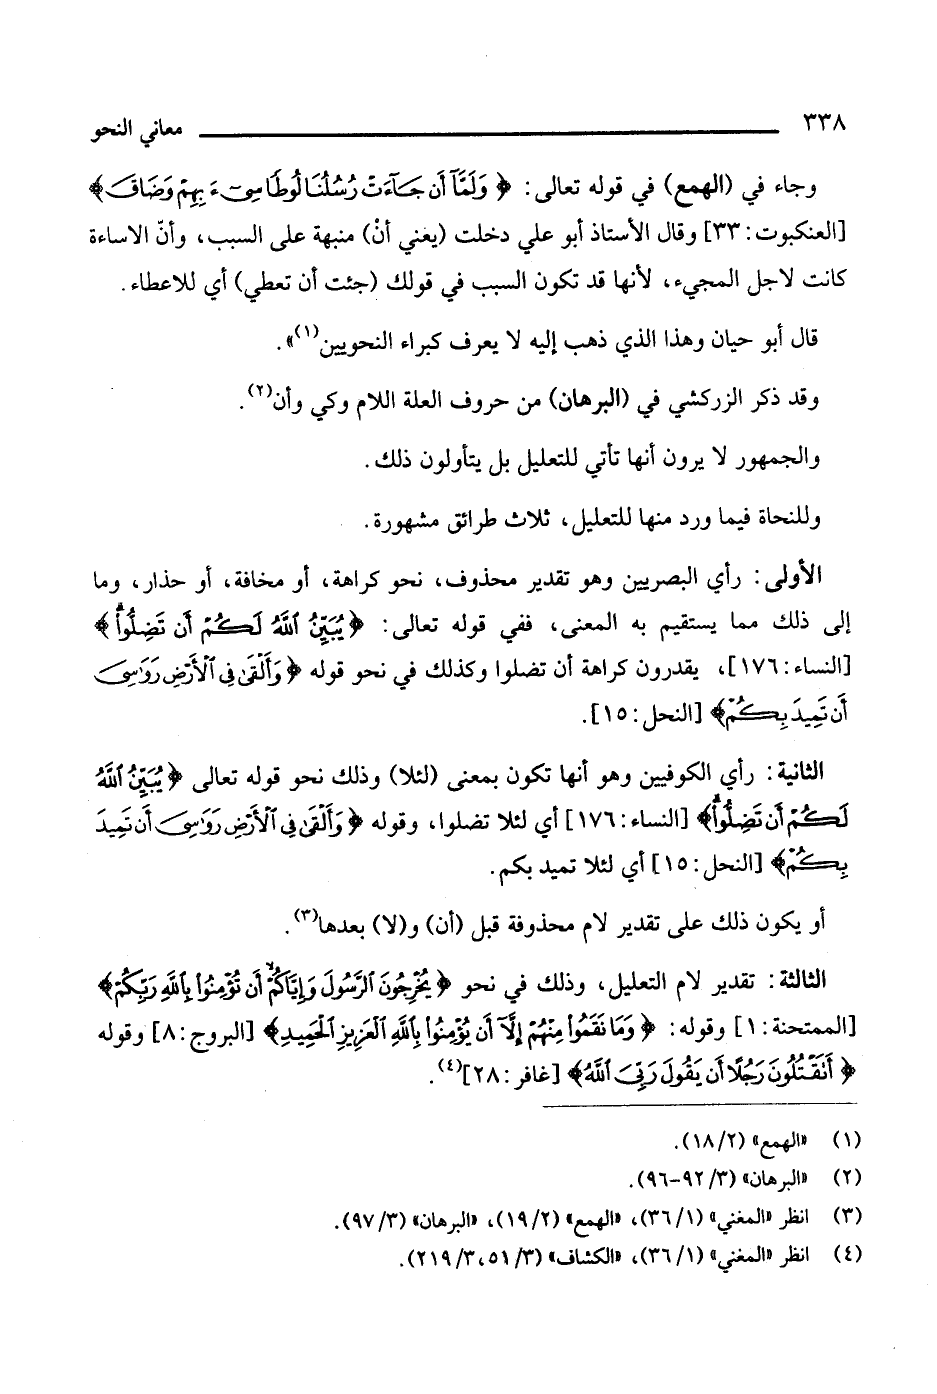 ٣٣٨ معاني النحو
وجاء في (الهمع) في قوله تعالى: ﴿وَلَمَّآ أَن جَآءَتْ رُسُلُنَا لُوطًا سِىٓءَ بِهِمْ وَضَاقَ﴾
[العنكبوت: ٣٣] وقال الأستاذ أبو علي دخلت (يعني أنْ) منبهة على السبب، وأنّ الاساءة
كانت لاجل المجيء، لأنها قد تكون السبب في قولك (جئت أن تعطي) أي للاعطاء.
قال أبو حيان وهذا الذي ذهب إليه لا يعرف كبراء النحويين(١)».
وقد ذكر الزركشي في (البرهان) من حروف العلة اللام وكي وأن(٢).
والجمهور لا يرون أنها تأتي للتعليل بل يتأولون ذلك.
وللنحاة فيما ورد منها للتعليل، ثلاث طرائق مشهورة.
الأولى: رأي البصريين وهو تقدير محذوف، نحو كراهة، أو مخافة، أو حذار، وما
إلى ذلك مما يستقيم به المعنى، ففي قوله تعالى: ﴿يُبَيِّنُ ٱللَّهُ لَكُمْ أَن تَضِلُّوا۟ۗ﴾
[النساء: ١٧٦]، يقدرون كراهة أن تضلوا وكذلك في نحو قوله ﴿وَأَلْقَىٰ فِى ٱلْأَرْضِ رَوَٰسِىَ
أَن تَمِيدَ بِكُمْ﴾ [النحل: ١٥].
الثانية: رأي الكوفيين وهو أنها تكون بمعنى (لئلا) وذلك نحو قوله تعالى ﴿يُبَيِّنُ ٱللَّهُ
لَكُمْ أَن تَضِلُّوا۟ۗ﴾ [النساء: ١٧٦] أي لئلا تضلوا، وقوله ﴿وَأَلْقَىٰ فِى ٱلْأَرْضِ رَوَٰسِىَ أَن تَمِيدَ
بِكُمْ﴾ [النحل: ١٥] أي لئلا تميد بكم.
أو يكون ذلك على تقدير لام محذوفة قبل (أن) و(لا) بعدها(٣).
الثالثة: تقدير لام التعليل، وذلك في نحو ﴿يُخْرِجُونَ ٱلرَّسُولَ وَإِيَّاكُمْۙ أَن تُؤْمِنُوا۟ بِٱللَّهِ رَبِّكُمْ﴾
[الممتحنة: ١] وقوله: ﴿وَمَا نَقَمُوا۟ مِنْهُمْ إِلَّآ أَن يُؤْمِنُوا۟ بِٱللَّهِ ٱلْعَزِيزِ ٱلْحَمِيدِ﴾ [البروج: ٨] وقوله
﴿أَتَقْتُلُونَ رَجُلًا أَن يَقُولَ رَبِّىَ ٱللَّهُ﴾ [غافر: ٢٨](٤).
(١) «الهمع» (١٨/٢).
(٢) «البرهان» (٩٢/٣-٩٦).
(٣) انظر «المغني» (٣٦/١)، «الهمع» (١٩/٢)، «البرهان» (٩٧/٣).
(٤) انظر «المغني» (٣٦/١)، «الكشاف» (٥١/٣، ٢١٩/٣).